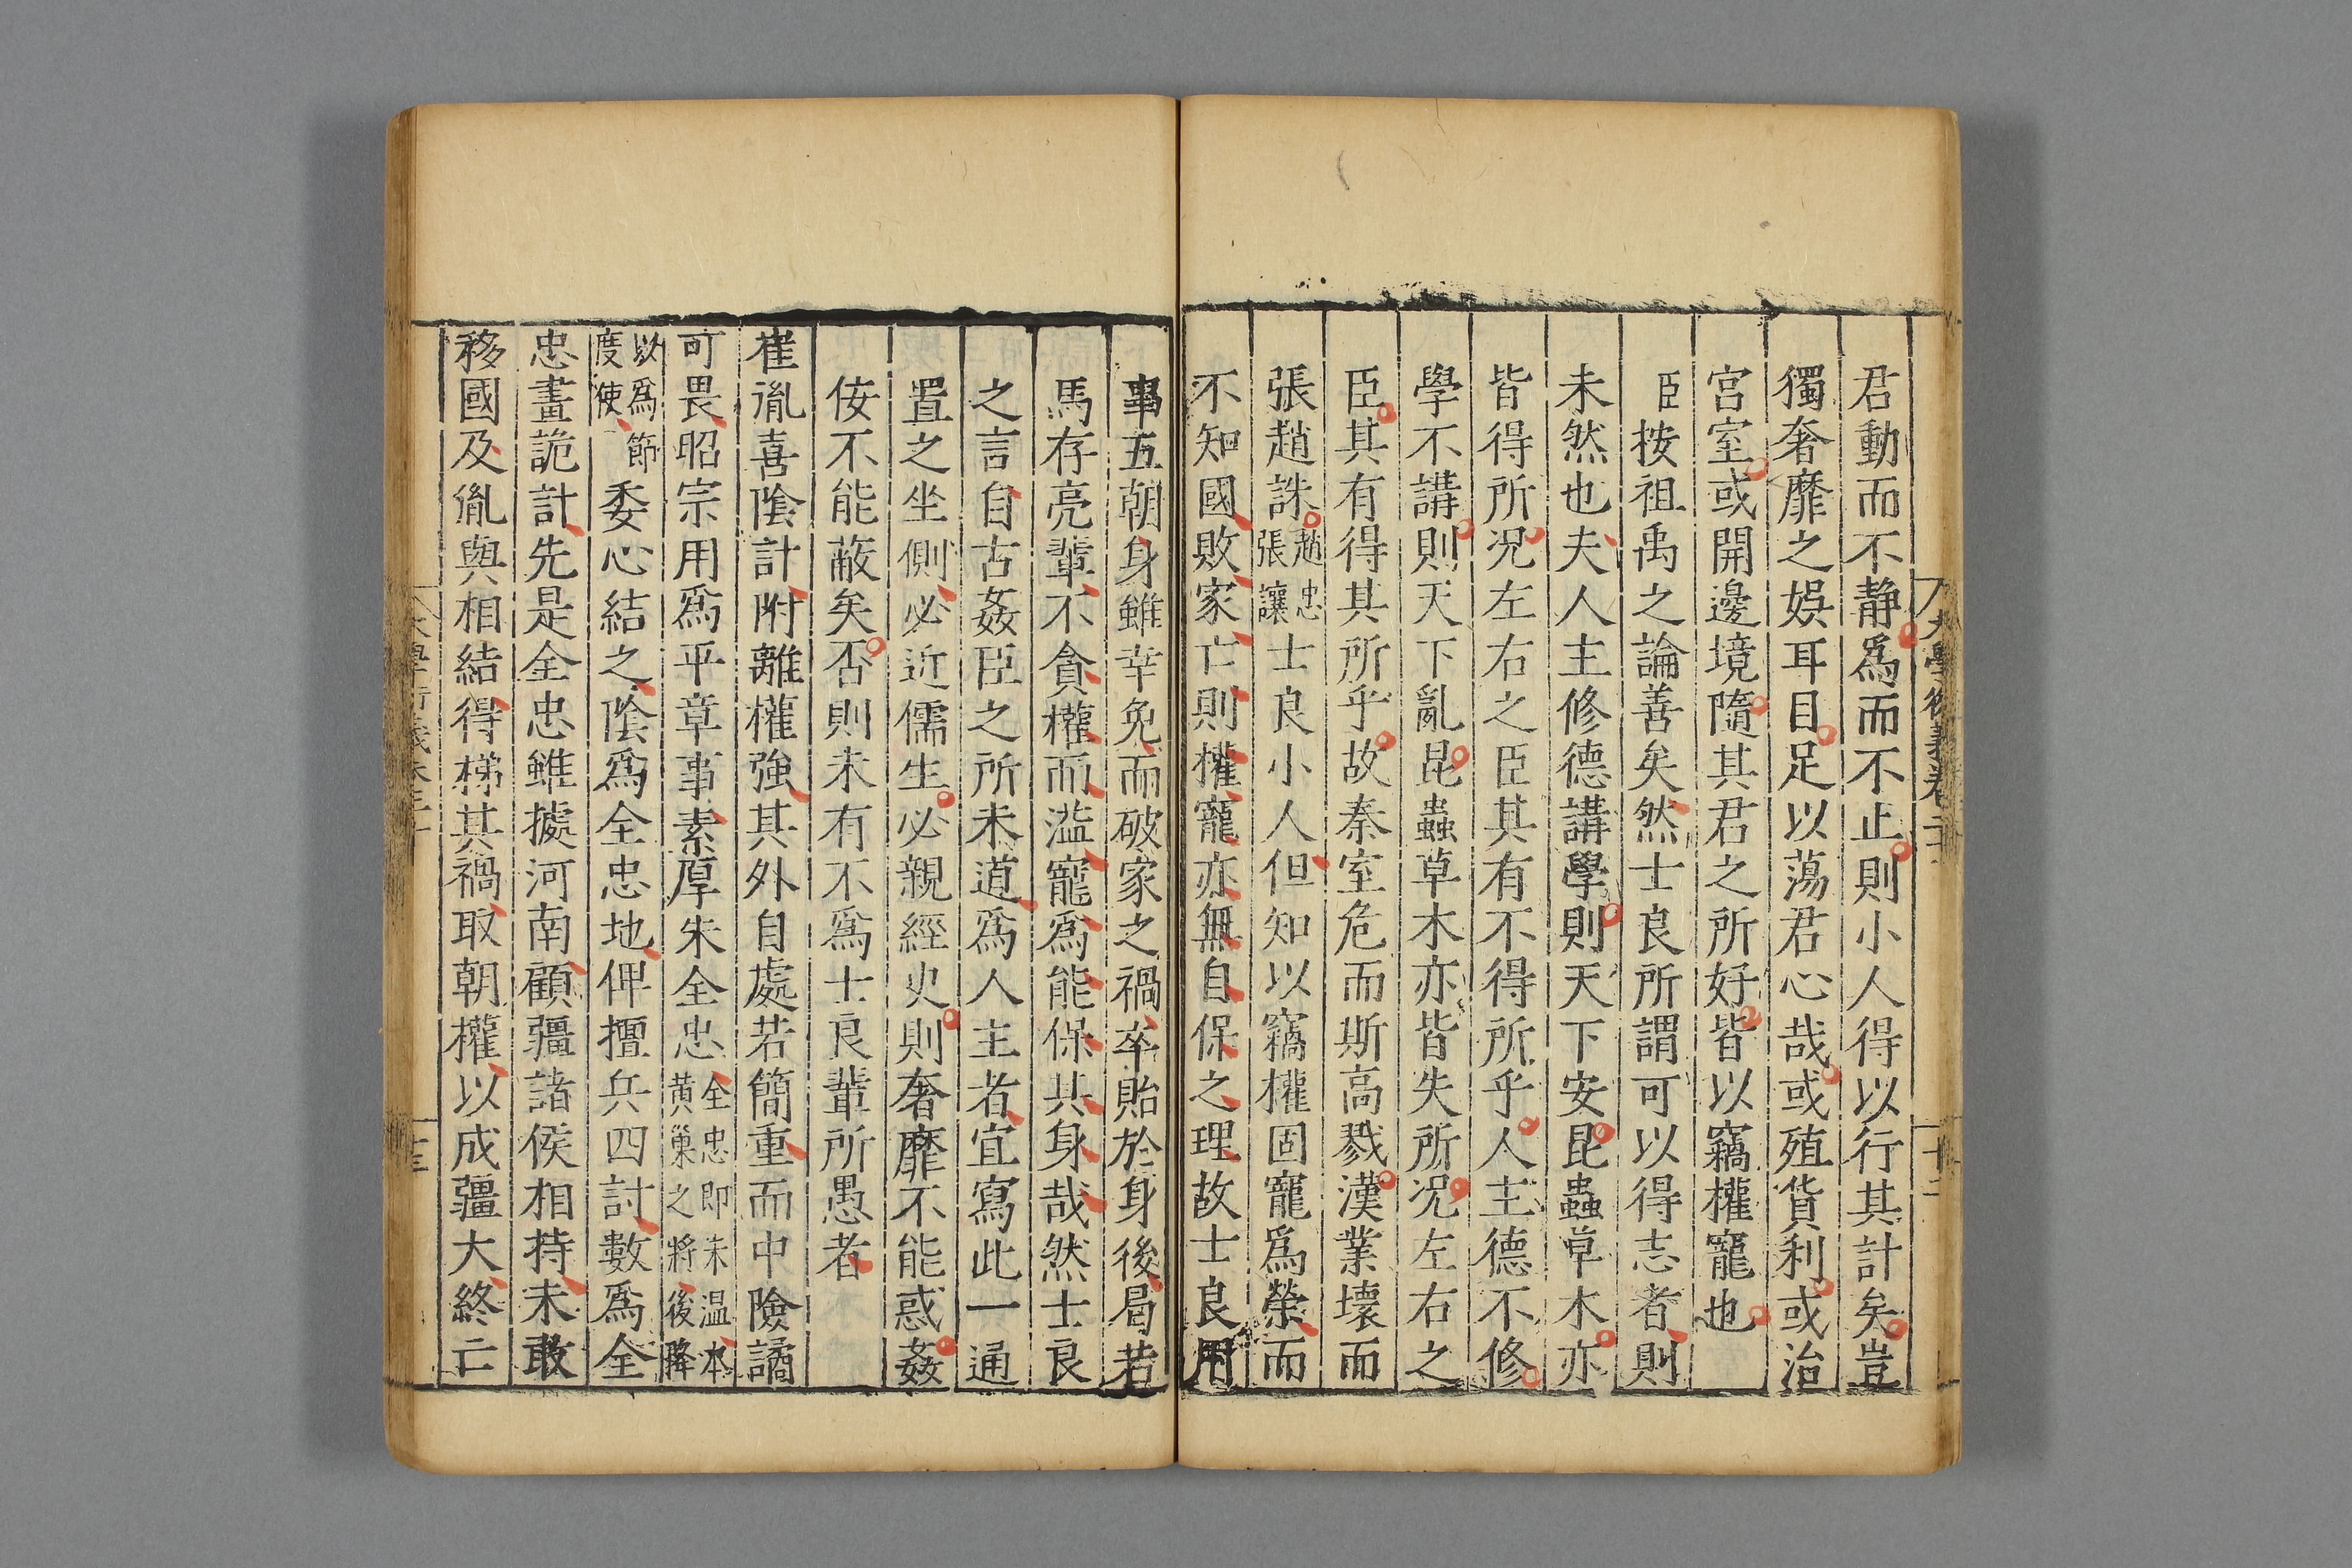 君動而不静爲而不止則小人得以行其計矣豈
獨奢靡之娛耳目足以蕩君心哉或殖貨利或治
宮室或開邊境隨其君之所好皆以竊權寵也
臣按祖禹之論善矣然士良所謂可以得志者則
未然也夫人主修德講學則天下安昆蟲草木亦
皆得所况左右之臣其有不得所乎人主德不修
學不講則天下亂昆蟲草木亦皆失所况左右之
臣其有得其所乎故秦室危而斯高戮漢業壞而
張趙誅趙忠張讓士良小人但知以竊權固寵爲榮而
不知國敗家亡則權寵亦無自保之理故士良用
事五朝身雖幸免而破家之禍卒貽於身後曷若
馬存亮輩不貪權而滥寵爲能保其身哉然士良
之言自古姦臣之所未道爲人主者宜寫此一通
置之坐側必近儒生必親經史則奢靡不能惑姦
侫不能蔽矣否則未有不爲士良輩所愚者
崔胤喜陰計附離權強其外自處若簡重而中險譎
可畏昭宗用爲平章事素厚朱全忠全忠即朱温本黄巢之將後降
以爲節度使委心結之陰爲全忠地俾擅兵四討數爲全
忠畫詭計先是全忠雖㨿河南顧疆諸侯相持未敢
移國及胤與相結得梯其禍取朝權以成疆大終亡